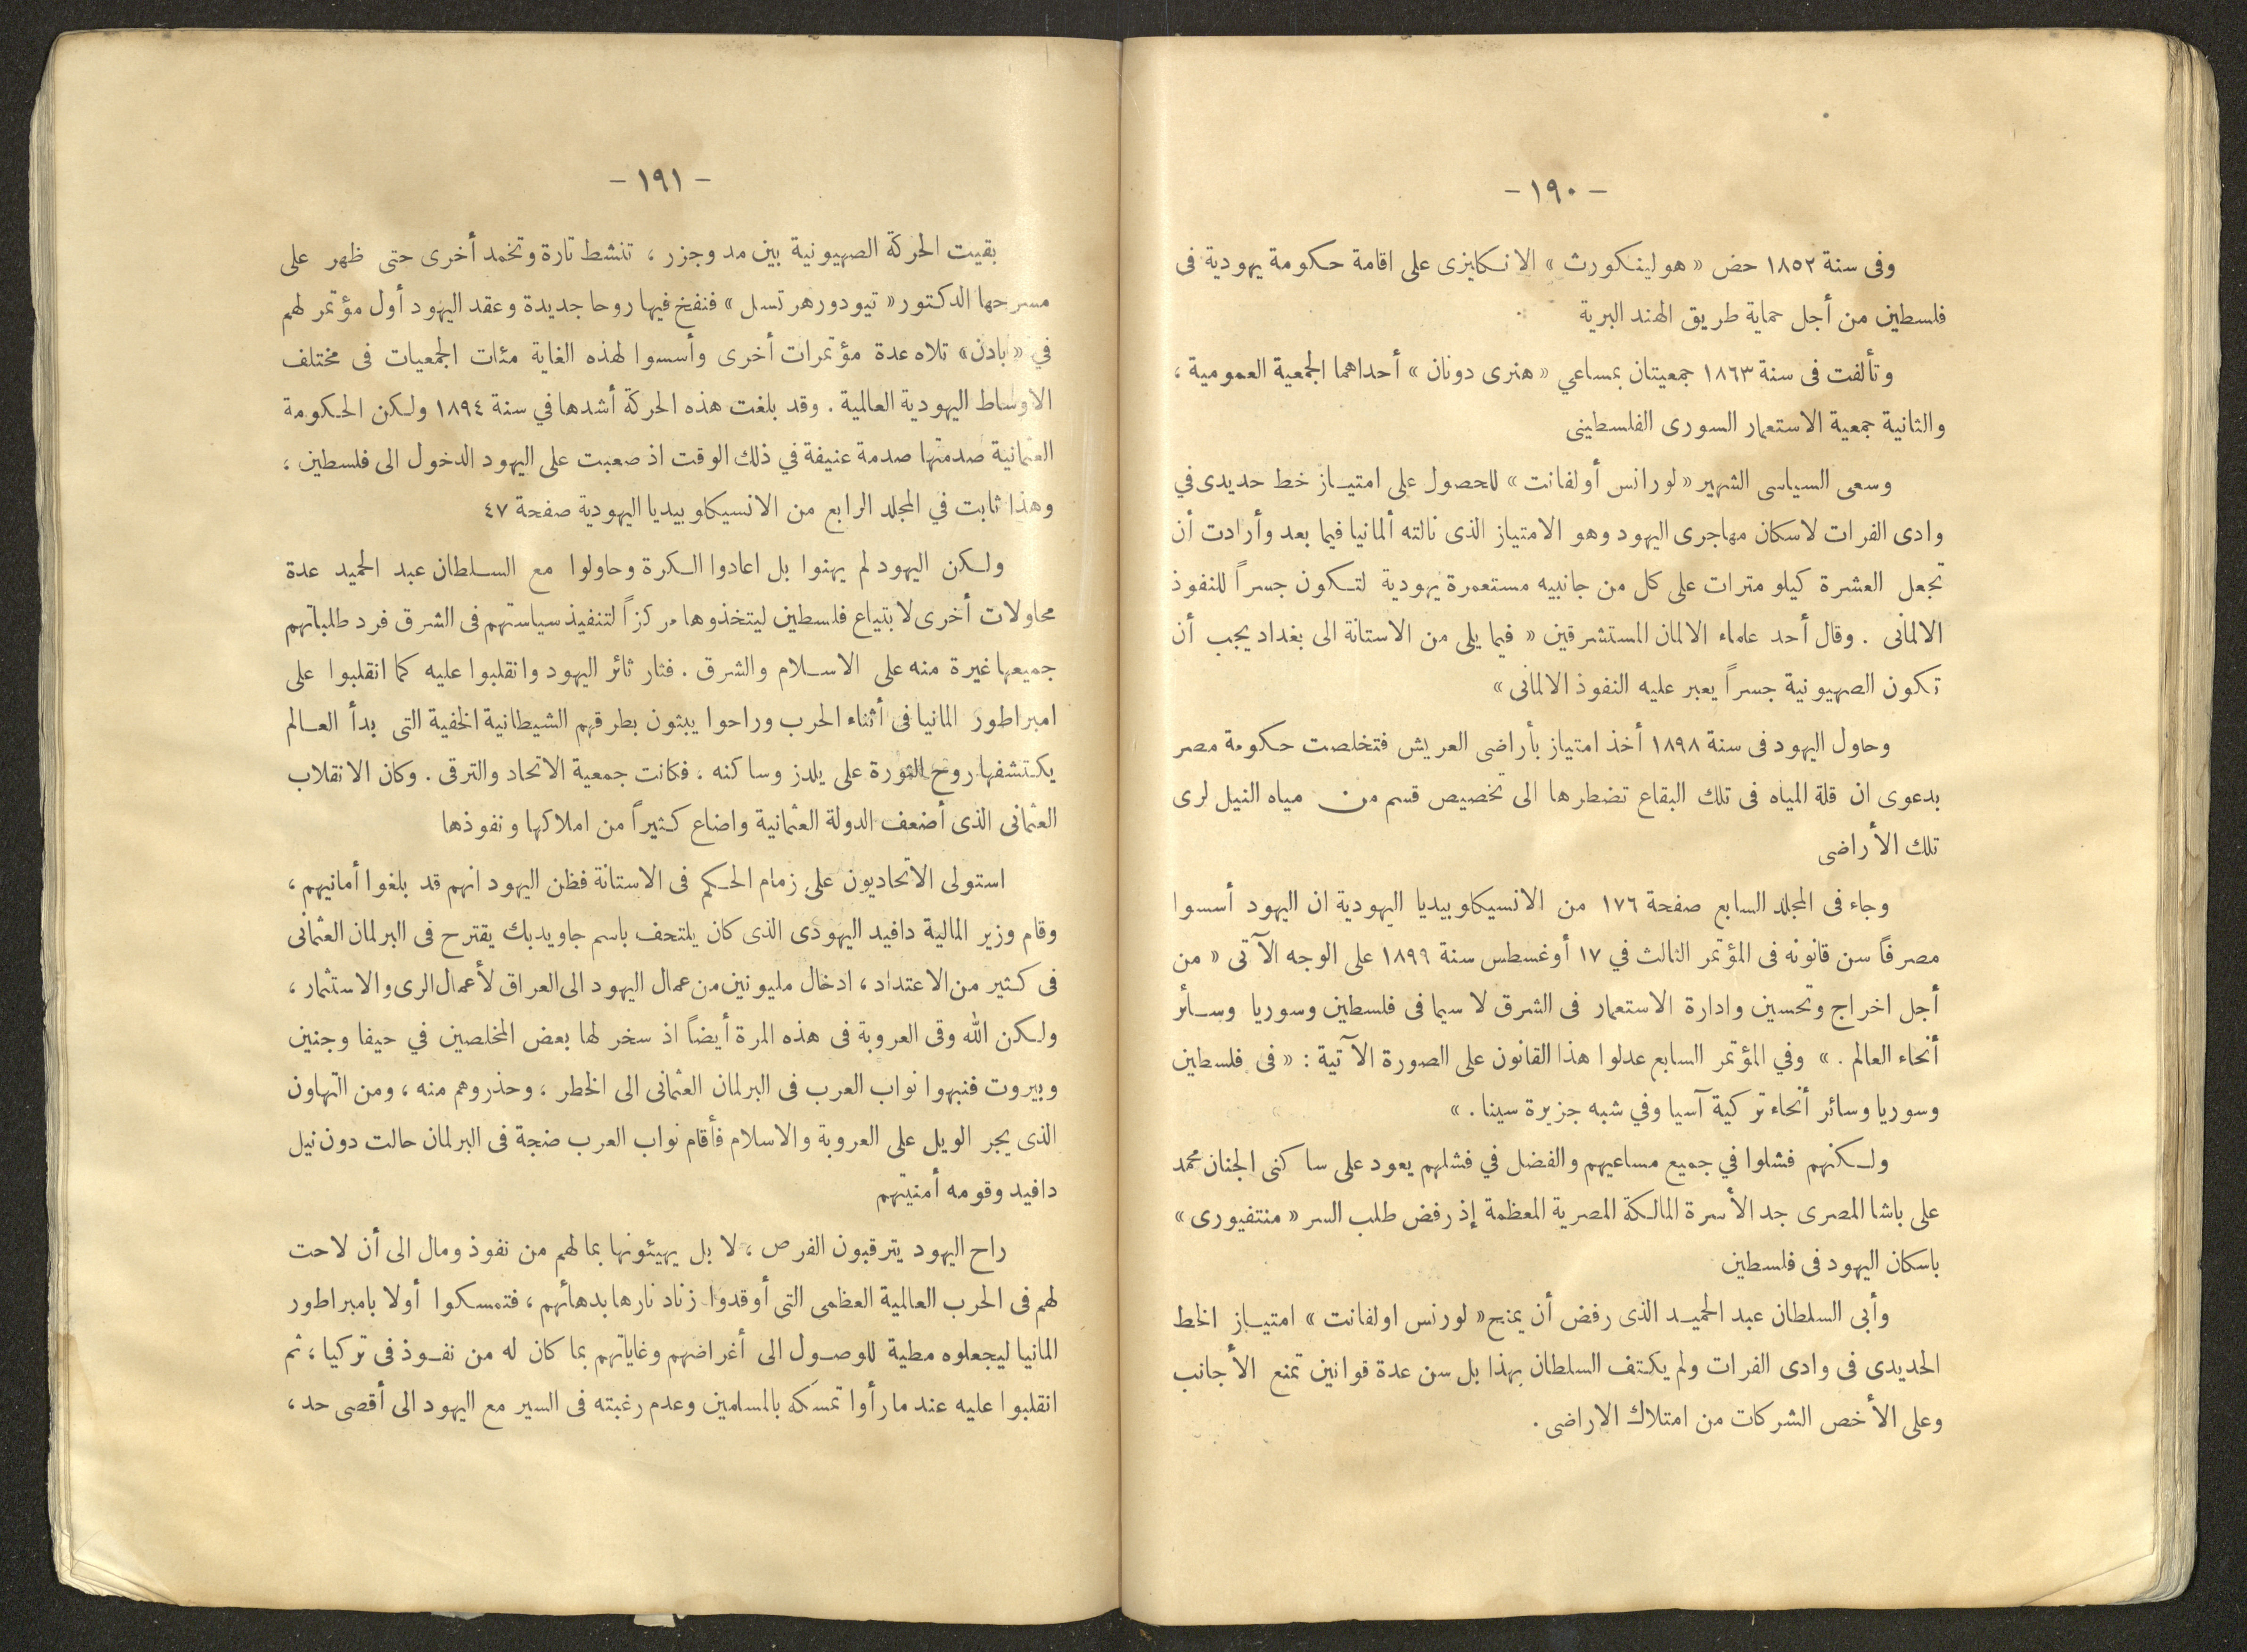 - ١٩٠ -
وفى سنة ١٨٥٢ حض « هولينكورث » الانكليزى على اقامة حكومة يهودية فى
فلسطين من أجل حماية طريق الهند البرية
وتألفت فى سنة ١٨٦٣ جمعيتان بمساعي « هنرى دونان » أحداهما الجمعية العمومية ،
والثانية جمعية الاستعمار السورى الفلسطينى
وسعى السياسى الشهير « لورانس أولفانت » للحصول على امتياز خط حديدى في
وادى الفرات لاسكان مهاجرى اليهود وهو الامتياز الذى نالته ألمانيا فيما بعد وأرادت أن
تجعل العشرة كيلو مترات على كل من جانبيه مستعمرة يهودية لتكون جسراً للنفوذ
الالمانى . وقال أحد علماء الالمان المستشرقين « فيما يلى من الاستانة الى بغداد يجب أن
تكون الصهيونية جسراً يعبر عليه النفوذ الالمانى »
وحاول اليهود فى سنة ١٨٩٨ أخذ امتياز بأراضى العريش فتخلصت حكومة مصر
بدعوى ان قلة المياه فى تلك البقاع تضطرها الى تخصيص قسم من مياه النيل لرى
تلك الأراضى
وجاء فى المجلد السابع صفحة ١٧٦ من الانسيكلوبيديا اليهودية ان اليهود أسسوا
مصرفاً سن قانونه فى المؤتمر الثالث في ١٧ أوغسطس سنة ١٨٩٩ على الوجه الآتى « من
أجل اخراج وتحسين وادارة الاستعمار فى الشرق لا سيما فى فلسطين وسوريا وسائر
أنحاء العالم . » وفي المؤتمر السابع عدلوا هذا القانون على الصورة الآتية : « فى فلسطين
وسوريا وسائر أنحاء تركية آسيا وفي شبه جزيرة سينا . »
ولكنهم فشلوا في جميع مساعيهم والفضل في فشلهم يعود على ساكنى الجنان محمد
على باشا المصرى جد الأسرة المالكة المصرية المعظمة إذ رفض طلب السر « منتفيورى »
باسكان اليهود فى فلسطين
وأبى السلطان عبد الحميد الذى رفض أن يمنح « لورنس اولفانت » امتياز الخط
الحديدى فى وادى الفرات ولم يكتف السلطان بهذا بل سن عدة قوانين تمنع الأجانب
وعلى الأخص الشركات من امتلاك الاراضى .
- ١٩١ -
بقيت الحركة الصهيونية بين مد وجزر ، تنشط تارة وتخمد أخرى حتى ظهر على
مسرحها الدكتور « تيودور هرتسل » فنفخ فيها روحا جديدة وعقد اليهود أول مؤتمر لهم
في « بادن » تلاه عدة مؤتمرات أخرى وأسسوا لهذه الغاية مئات الجمعيات فى مختلف
الاوساط اليهودية العالمية . وقد بلغت هذه الحركة أشدها في سنة ١٨٩٤ ولكن الحكومة
العثمانية صدمتها صدمة عنيفة في ذلك الوقت اذ صعبت على اليهود الدخول الى فلسطين ،
وهذا ثابت في المجلد الرابع من الانسيكلوبيديا اليهودية صفحة ٤٧
ولكن اليهود لم يهنوا بل اعادوا الكرة وحاولوا مع السلطان عبد الحميد عدة
محاولات أخرى لابتياع فلسطين ليتخذوها مركزاً لتنفيذ سياستهم فى الشرق فرد طلباتهم
جميعها غيرة منه على الاسلام والشرق . فثار ثائر اليهود وانقلبوا عليه كما انقلبوا على
امبراطور المانيا فى أثناء الحرب وراحوا يبثون بطرقهم الشيطانية الخفية التى بدأ العالم
يكتشفها روح الثورة على يلدز وساكنه . فكانت جمعية الاتحاد والترقى . وكان الانقلاب
العثمانى الذى أضعف الدولة العثمانية واضاع كثيراً من املاكها ونفوذها
استولى الاتحاديون على زمام الحكم فى الاستانة فظن اليهود انهم قد بلغوا أمانيهم ،
وقام وزير المالية دافيد اليهودى الذى كان يلتحف باسم جاويد بك يقترح فى البرلمان العثمانى
فى كثير من الاعتداد ، ادخال مليونين من عمال اليهود الى العراق لأعمال الرى والاستثمار ،
ولكن الله وقى العروبة فى هذه المرة أيضاً اذ سخر لها بعض المخلصين في حيفا وجنين
وبيروت فنبهوا نواب العرب فى البرلمان العثمانى الى الخطر ، وحذروهم منه ، ومن التهاون
الذى يجر الويل على العروبة والاسلام فأقام نواب العرب ضجة فى البرلمان حالت دون نيل
دافيد وقومه أمنيتهم
راح اليهود يترقبون الفرص ، لا بل يهيئونها بما لهم من نفوذ ومال الى أن لاحت
لهم فى الحرب العالمية العظمى التى أوقدوا زناد نارها بدهائهم ، فتمسكوا أولا بامبراطور
المانيا ليجعلوه مطية للوصول الى أغراضهم وغاياتهم بما كان له من نفوذ فى تركيا ، ثم
انقلبوا عليه عند ما رأوا تمسكه بالمسلمين وعدم رغبته فى السير مع اليهود الى أقصى حد ،